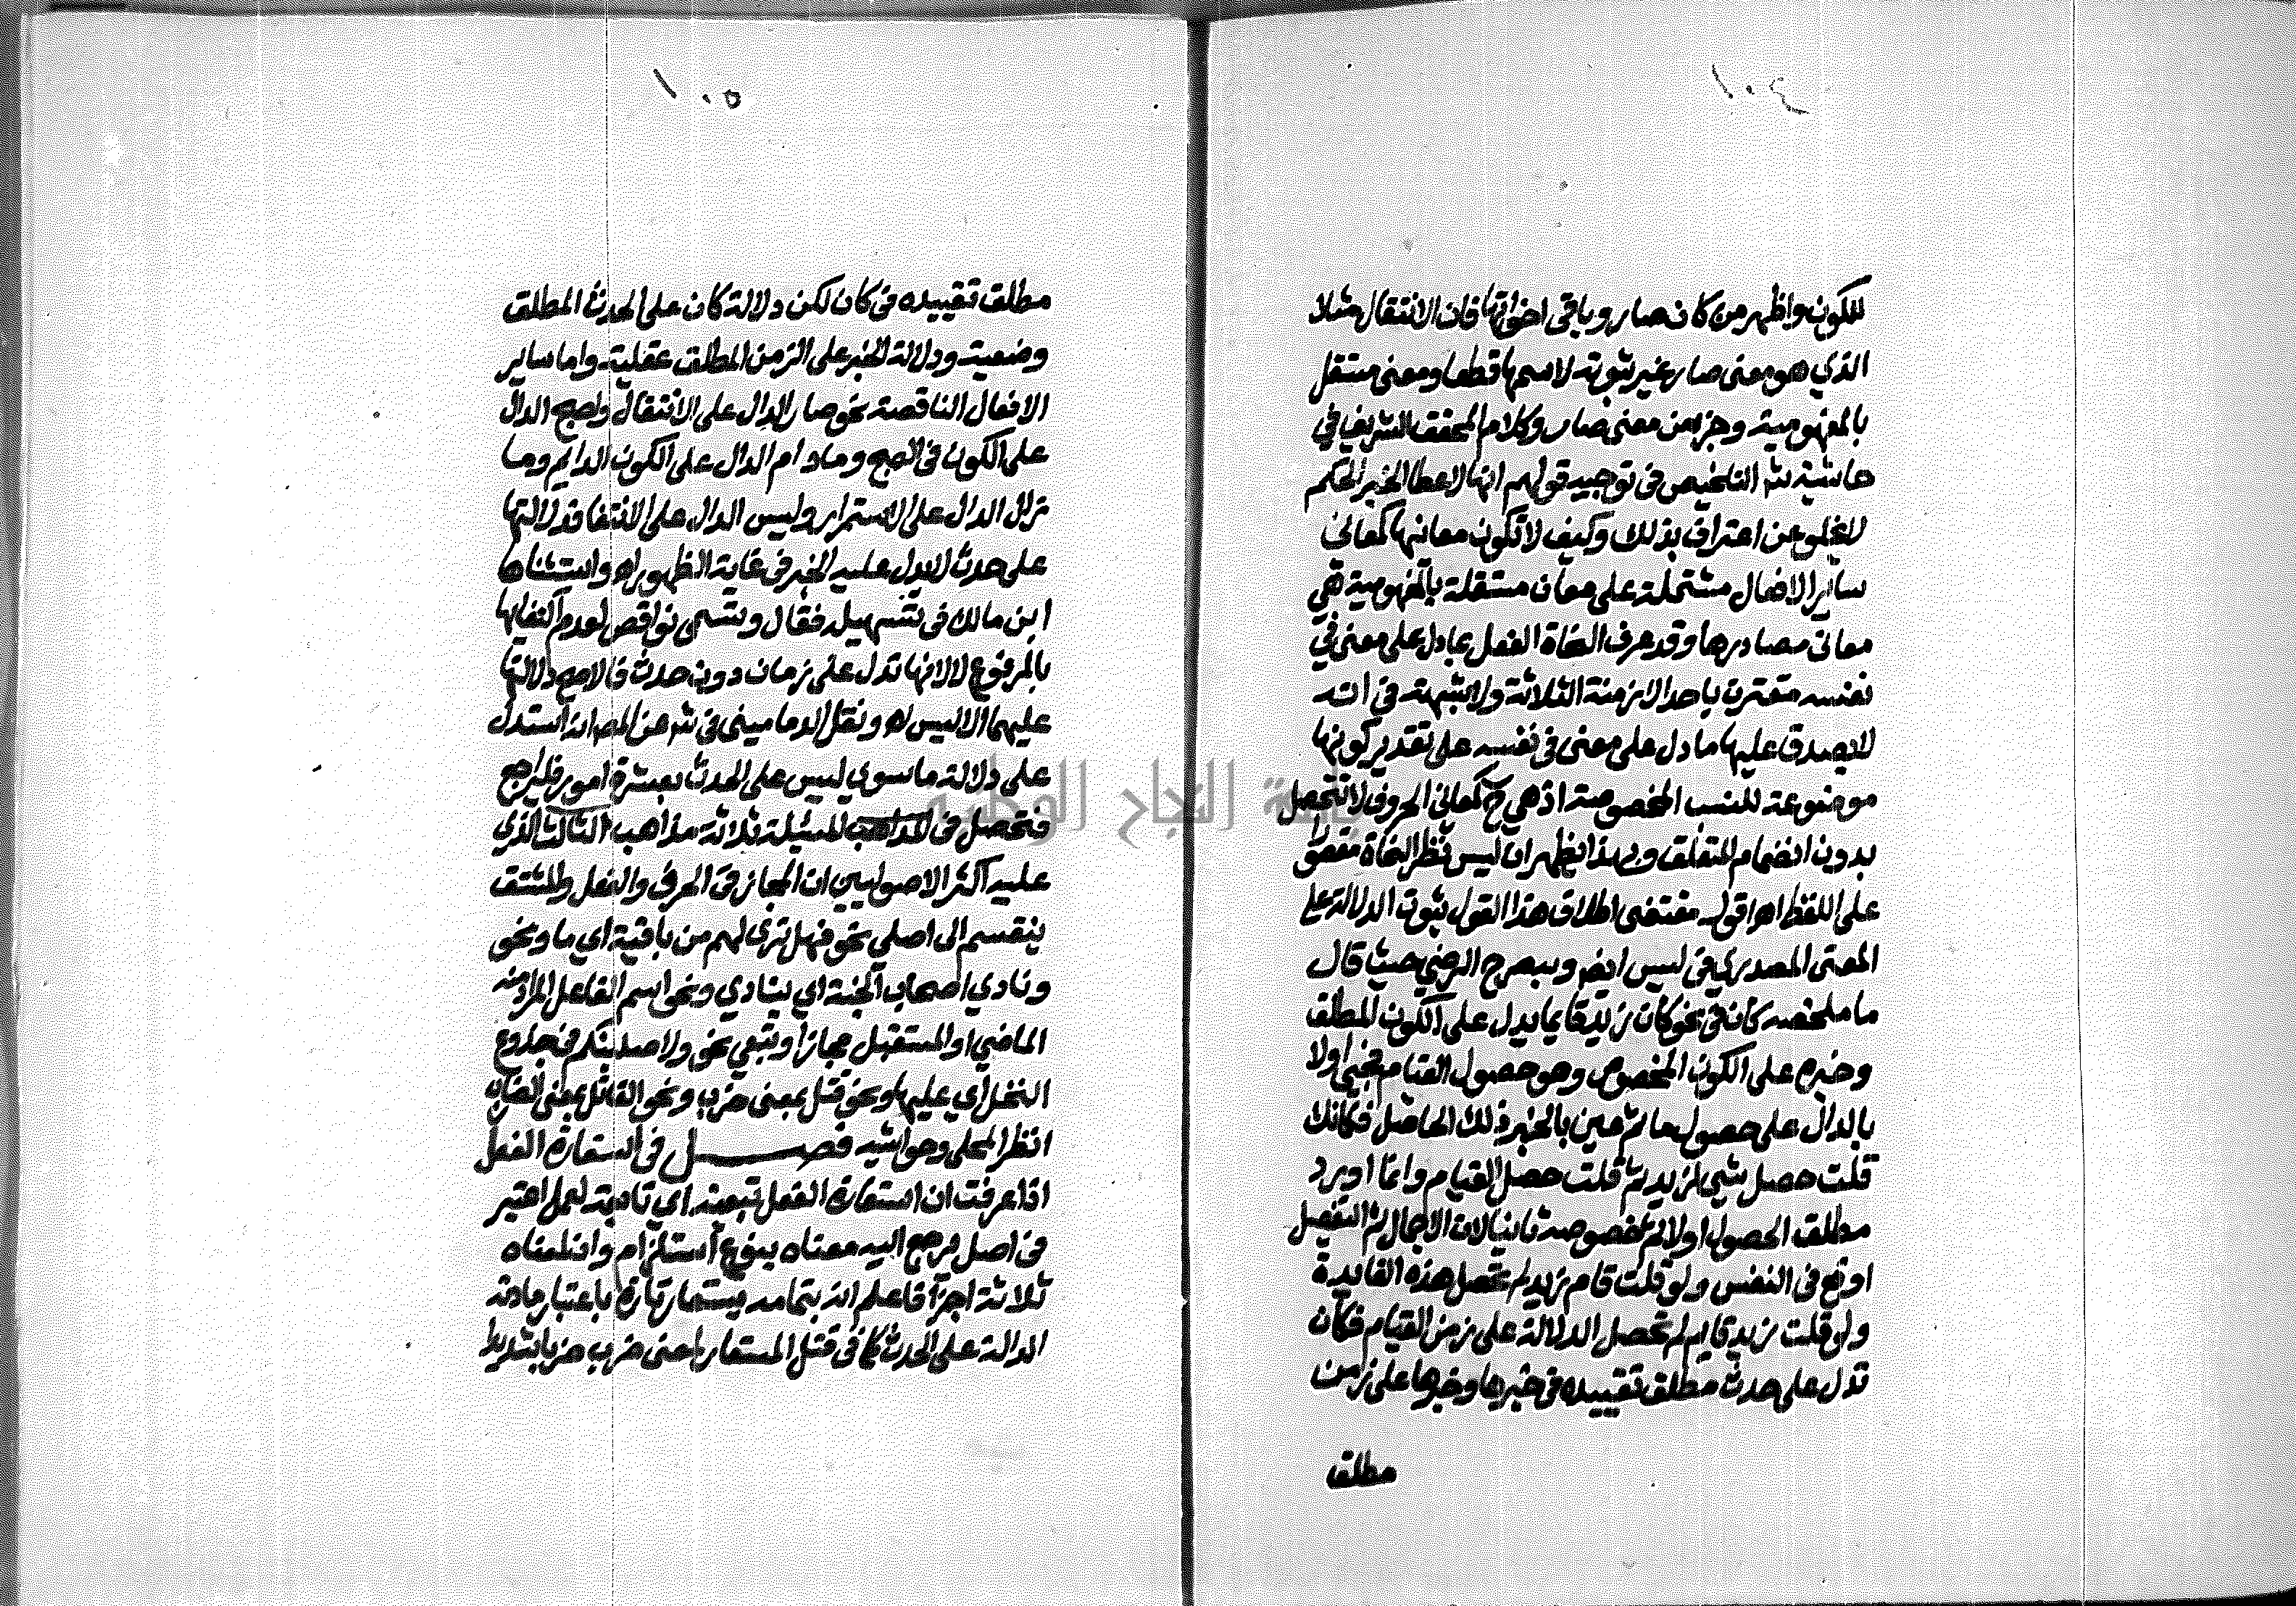 ١٠٤
للكون واظهر من كان صار وباقي اخواتها فان الانتقال مثلا
الذي هو معنى صار غير ثبوته لاسمها قطعا ومعنى مستقل
بالمفهومية وجزء من معنى صار وكلام المحقق الشريف في
حاشية شر التلخيص في توجيه قولهم انها لاعطا الخبر الحكم
لا يخلو عن اعتراف بذلك وكيف لا تكون معانيها كمعاني
ساير الافعال مشتملة على معان مستقلة بالمفهومية هي
معاني مصادرها وقد عرف النحاة الفعل بما دل على معنى في
نفسه مقترن باحد الازمنة الثلاثة ولا شبهة في انه
لا يصدق عليها ما دل على معنى في نفسه على تقدير كونها
موضوعة للنسب المخصوصة اذ هي ح كمعاني الحروف لا تتحصل
بدون انضمام المتعلق وبهذا يظهر ان ليس نظر النحاة مقصورا
على اللفظ اه اقول مقتضى اطلاق هذا القول ثبوت الدلالة على
المعنى المصدري في ليس ايض وبه صرح الرضي حيث قال
ما ملخصه كان في نحو كان زيد قايما يدل على الكون المطلق
وخبره على الكون المخصوص وهو حصول القيام فجئ اولا
بالدال على حصول ما ثم عين بالخبر ذلك الحاصل فكانك
قلت حصل شي لزيد ثم قلت حصل القيام وانما اورد
مطلق الحصول اولا ثم تخصوصه ثانيا لان الاجمال ثم التفصيل
اوقع في النفس ولو قلت قام زيد لم تحصل هذه الفايدة
ولو قلت زيد قايم لم تحصل الدلالة على زمن القيام فكان
تدل على حدث مطلق تقييده في خبرها وخبرها على زمن
مطلق
١٠٥
مطلق تقييده في كان لكن دلالة كان على الحدث المطلق
وضعية ودلالة الخبر على الزمن المطلق عقلية واما ساير
الافعال الناقصة نحو صار الدال على الانتقال واصبح الدال
على الكون في الصبح ومادام الدال على الكون الدايم وما
زال الدال على الاستمرار وليس الدال على الانتفا فدلالتها
على حدث لا يدل عليه الخبر في غاية الظهور اه واستثناها
ابن مالك في تسهيله فقال وتسمى نواقص لعدم اكتفايها
بالمرفوع لا لانها تدل على زمان دون حدث فالاصح دلالتها
عليهما الا ليس اه ونقل الدماميني في شر عن المص انه استدل
على دلالة ما سوى ليس على الحدث بعشرة امور فليراجع
فتحصل في المذاهب للمسئلة ثلاثة مذاهب الثالث الذي
عليه اكثر الاصوليين ان المجاز في الحرف والفعل والمشتق
ينقسم الى اصلي نحو فهل ترى لهم من باقية اي ما ونحو
ونادى اصحاب الجنة اي ينادي ونحو اسم الفاعل المراد منه
الماضي او المستقبل مجازا وتبعي نحو ولاصلبنكم في جذوع
النخل اي عليها ونحو قتل بمعنى ضرب ونحو القاتل بمعنى الضارب
انظر المحلى وحواشيه فصل في استعارة الفعل
اذا عرفت ان استعارة الفعل تبعية اي تابعة لعمل اعتبر
في اصل مرجع اليه معناه بنوع استلزام وان لمعناه
ثلاثة اجزآ فاعلم انه بتمامه يستعار تارة باعتبار مادته
الدالة على الحدث كما في قتل المستعار لمعنى ضرب ضربا شديدا